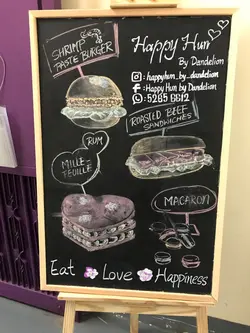 SHRIMP
PASTE BURGER
Happy Hun
By Dandelion
: happyhun_by_dandelion
: Happy Hun by Dandelion
: 5285 6612
ROASTED BEEF
SANDWICHES
RUM
MILLE-
FEUILLE
MACARON
Eat Love Happiness